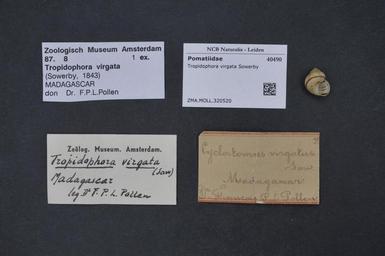 Zoologisch Museum Amsterdam
87. 8 1 ex.
Tropidophora virgata
(Sowerby, 1843)
MADAGASCAR
don Dr. F.P.L.Pollen
NCB Naturalis - Leiden
Pomatiidae 40490
Tropidophora virgata Sowerby
ZMA.MOLL.320520
Zoölog. Museum. Amsterdam.
Tropidophora virgata
(Sow)
Madagascar
leg Dr F. P. L. Pollen
Cyclostomus virgatus
Sow.
Madagascar
Pollen